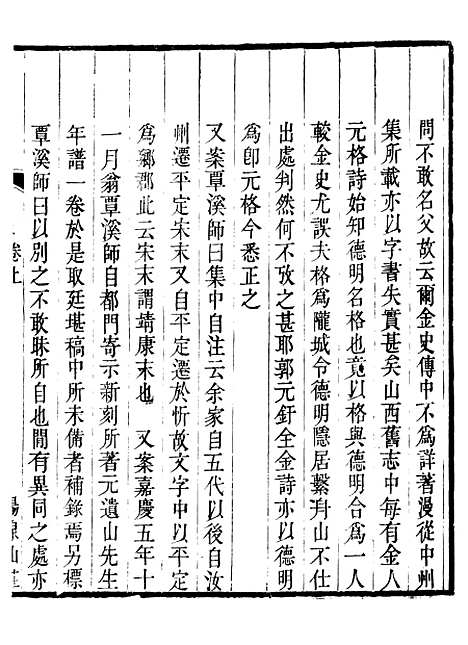 問不敢名父故云爾金史傳中不爲詳著漫從中州
集所載亦以字書失實甚矣山西舊志中每有金人
元格詩始知德明名格也竟以格與德明合爲一人
較金史尤誤夫格爲隴城令德明隱居繫舟山不仕
出處判然何不攷之甚耶郭元釪全金詩亦以德明
爲卽元格今悉正之
又案覃溪師曰集中自注云余家自五代以後自汝
州遷平定宋末又自平定遷於忻故文字中以平定
爲鄉郡此云宋末謂靖康末也 又案嘉慶五年十
一月翁覃溪師自都門寄示新刻所著元遺山先生
年譜一卷於是取廷堪稿中所未備者補錄焉另標
覃溪師曰以別之不敢昧所自也閒有異同之處亦
卷上